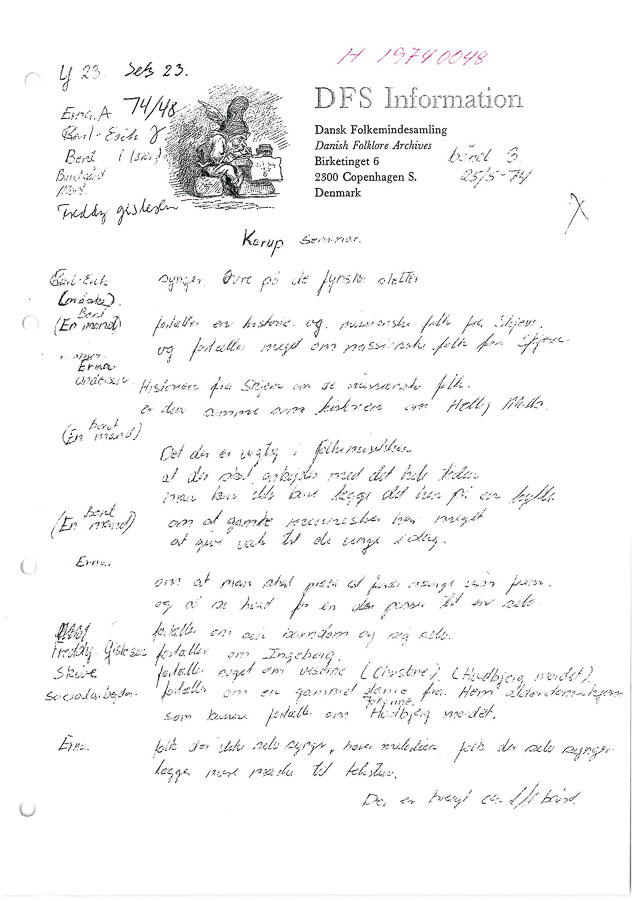 H 19740048
Y 23. Seks 23.
74/48
Erna. A
Karl-Erik
Bent
Freddy Gislesen
DFS Information
Dansk Folkemindesamling
Danish Folklore Archives
Birketinget 6
2300 Copenhagen S.
Denmark
bånd 3.
25/5-74
Karup Seminar.
Karl-Erik synger, Ovre på de fynske sletter
(måske).
Bent
(En mand) fortæller en historie og missionske folk fra Skjern.
og fortæller meget om missionske folk fra Skjern
Erna
Historien fra Skjern om de missionske folk.
er den samme som historien om Hellig
Bent
(En mand)
Det der er vigtig i folkemusikken
at der skal arbejdes med det hele tiden
man kan ikke bare lægge det hen på en hylde
Bent
(En mand) om at gamle mennesker har meget
at give væk til de unge i dag.
Erna.
om at man skal prøve at finde sange
og at se hvad for en der passer til en selv.
fortæller om sin barndom og sig selv.
Freddy Gislesen fortæller om Ingeborg.
Skive fortæller noget om viserne (Christine), (Hvidbjerg mordet).
socialarbejder fortæller om en gammel dame fra Hem alderdomshjem
som kunne fortælle om Hvidbjerg mordet.
Erna. folk der ikke selv synger, hører melodien, folk der selv synger
lægger mere mærke til teksten.
Der er brugt ca. 1/1 bånd.